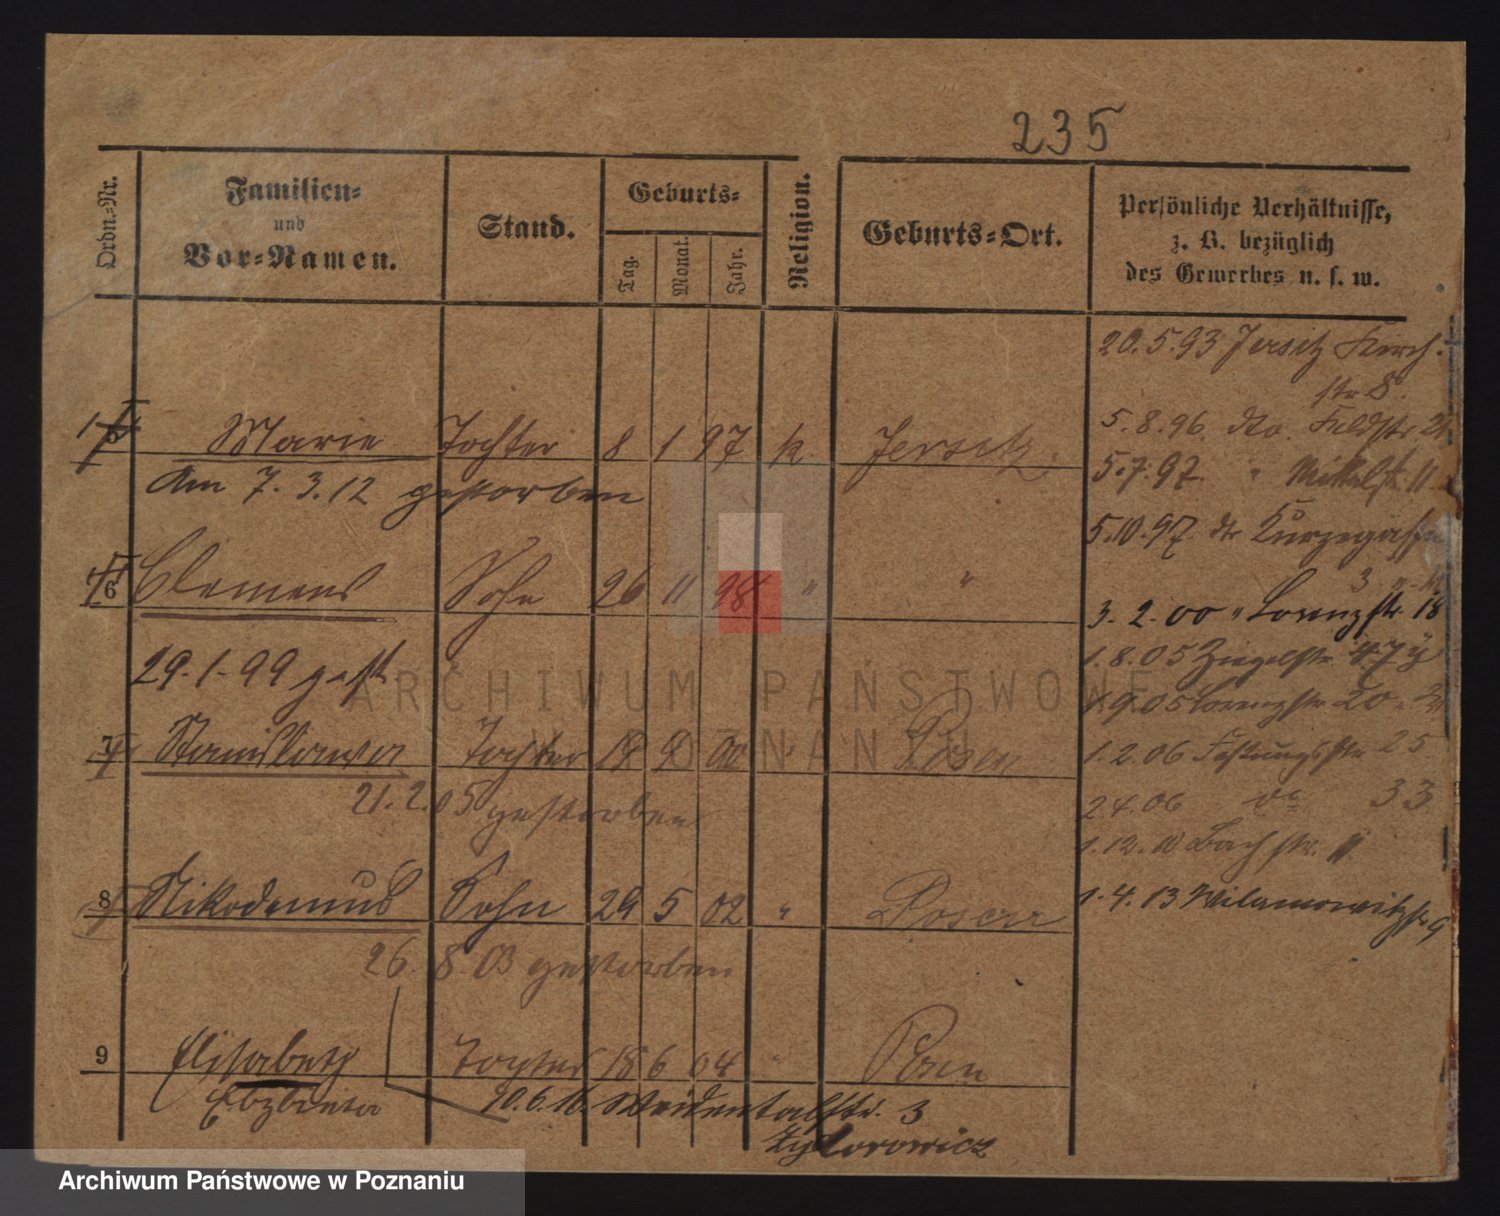 235
Ordn.-Nr.
Familien-
und
Vor-Namen.
Stand.
Geburts-
Tag.
Monat.
Jahr.
Religion.
Geburts-Ort.
Persönliche Verhältnisse,
z. B. bezüglich
des Gewerbes u. s. w.
20.5.93 Jersitz Kirch-
str 8.
5.8.96. dto. Feldstr. 21
5.7.97. " Mittelstr. 11
5.10.97. do Kurzegasse
3
3. 2. 00 " Lorenzstr. 18
1.8.05 Ziegelstr.
1.9.05 Lorenzstr. 20
1.2.06 Festungsstr. 25
2.4.06 do 33
1.12.10 Bachstr. 11
1.4.13 Wilamowitzstr 9
Marie Tochter 8 1 97 k. Jersitz.
Am 7.3.12 gestorben
6 Clemens Sohn 26 11 98 " "
29.1.99 gest.
7 Stanislawa Tochter 19 9 00 " Posen
21.2.05 gestorben
8 Nikodemus Sohn 29 5 02 " Posen
26. 8. 03 gestorben
9 Elisabeth Tochter 18 6 04 " Posen
Elzbieta 20.6.16. Weidentalstr. 3
ARCHIWUM PAŃSTWOWE
W POZNANIU
Archiwum Państwowe w Poznaniu